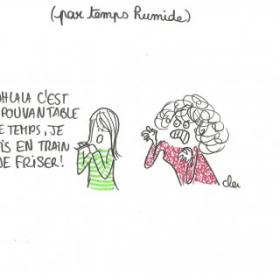 (par temps humide)
OHLALA C'EST
POUVANTABLE
E TEMPS, JE
IS EN TRAIN
DE FRISER!
clev